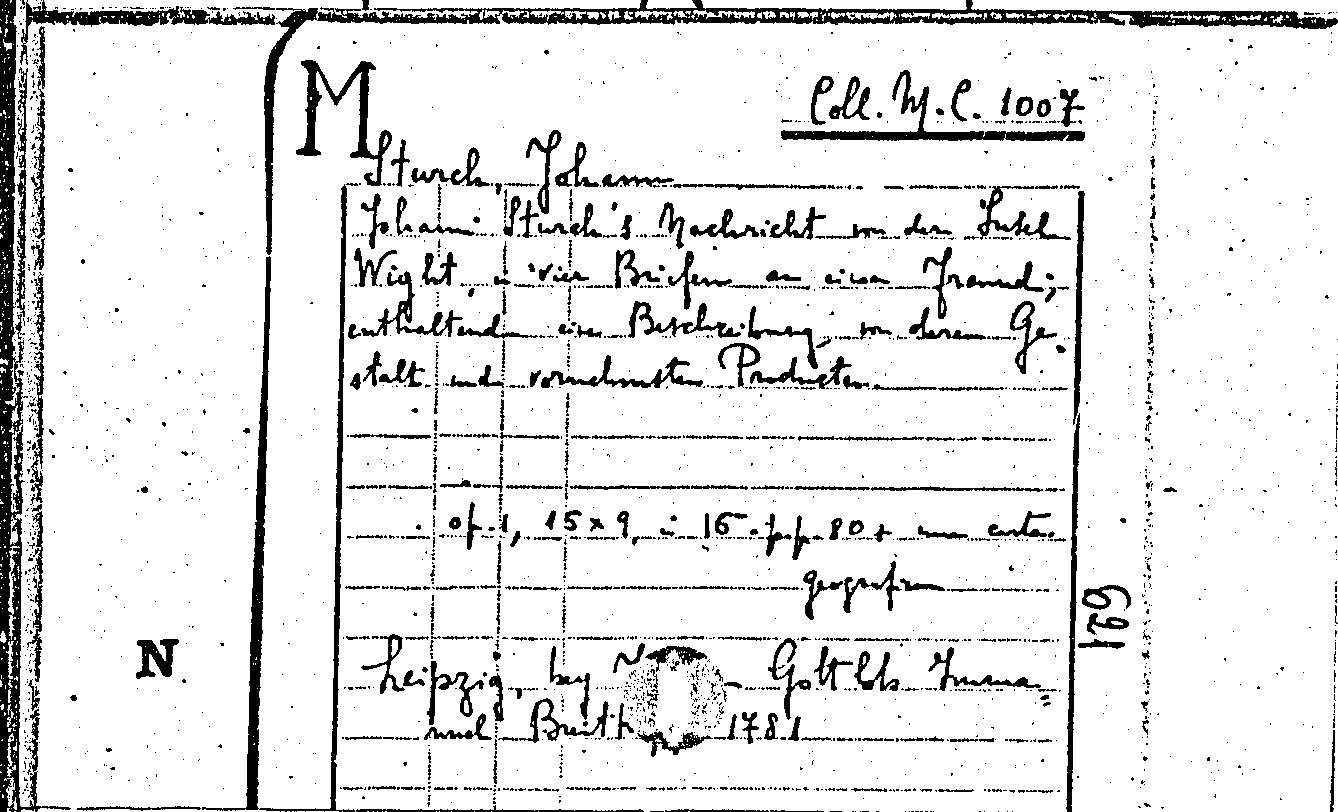 M
Coll. M.C. 1007
Sturch, Johann
Johann Sturch's Nachricht von der Insel
Wight, in vier Briefen an einen Freund;
enthaltend eine Beschreibung von deren Ge-
stalt und vornehmsten Producten.
op. 1, 15 x 9, in 16° pp. 80 + una carta
geografica
1691
N
Leipzig, bey Gottlob Imma=
nuel 1781